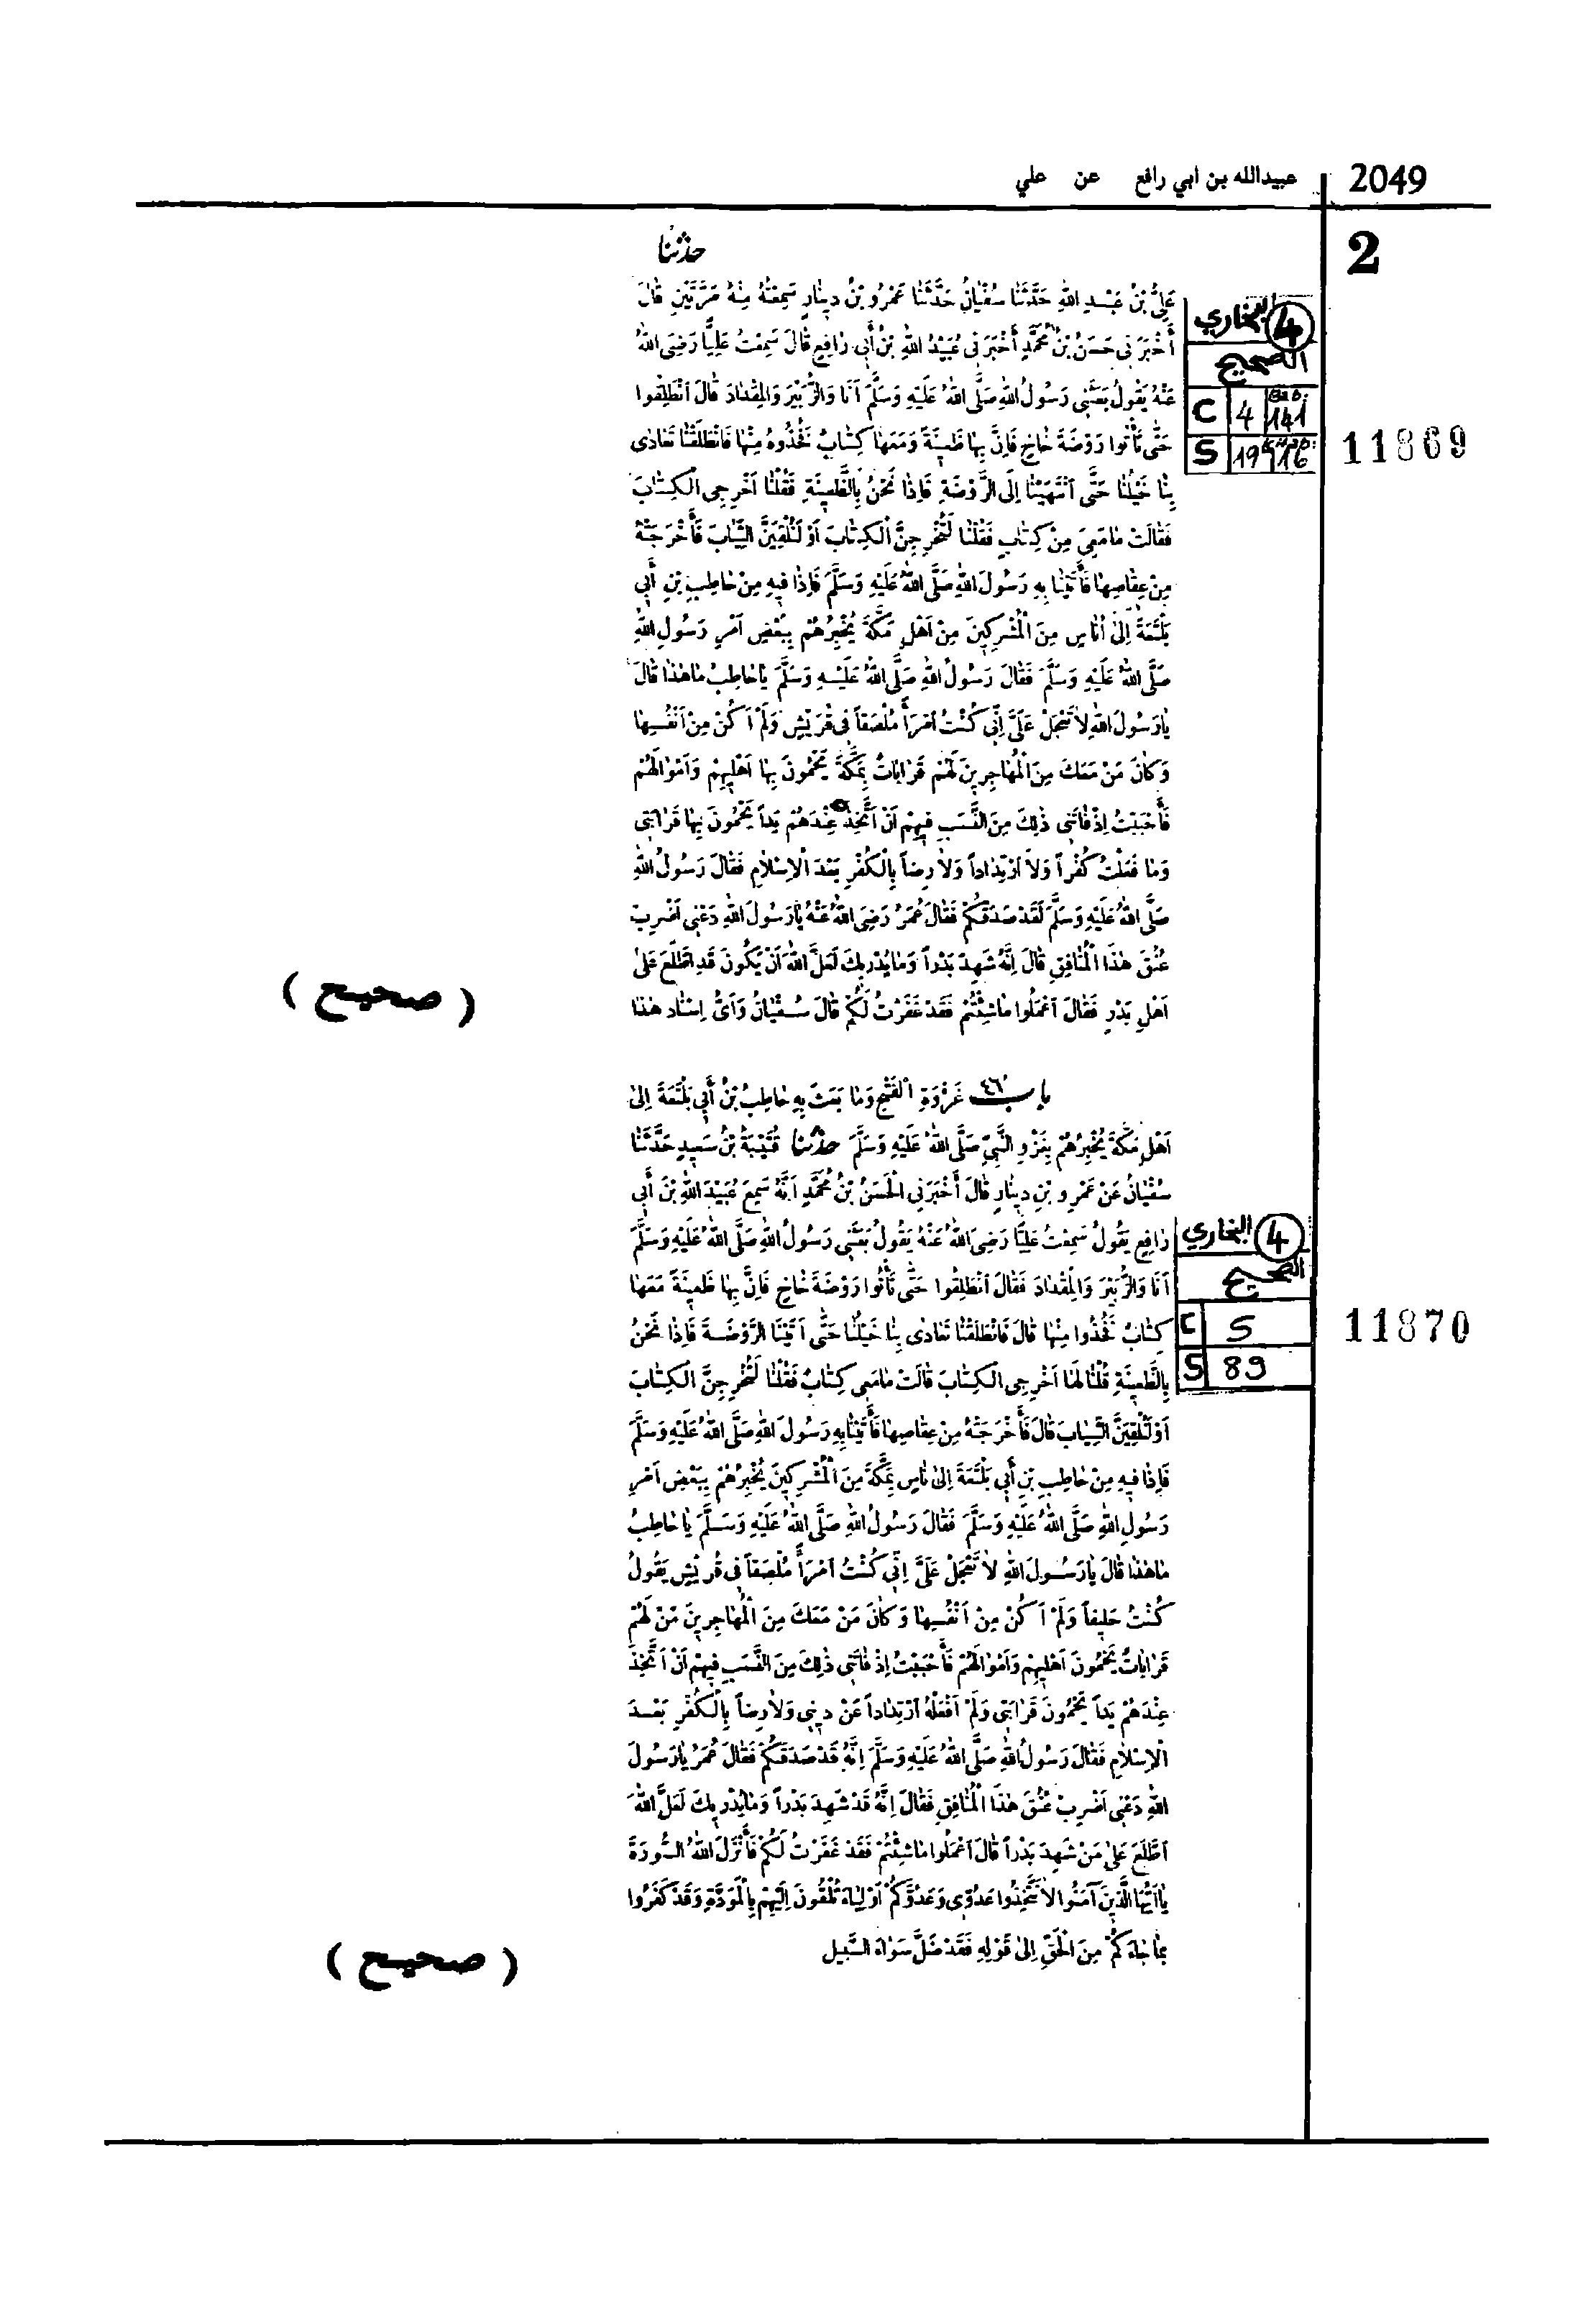 2049 عبيدالله بن ابي رافع عن علي
2
حدثنا
عَلِيُّ بْنُ عَبْدِ اللهِ حَدَّثَنَا سُفْيَانُ حَدَّثَنَا عَمْرُو بْنُ دِينَارٍ سَمِعْتُهُ مِنْهُ مَرَّتَيْنِ قَالَ
أَخْبَرَنِي حَسَنُ بْنُ مُحَمَّدٍ أَخْبَرَنِي عُبَيْدُ اللهِ بْنُ أَبِي رَافِعٍ قَالَ سَمِعْتُ عَلِيًّا رَضِيَ اللهُ
عَنْهُ يَقُولُ بَعَثَنِي رَسُولُ اللهِ صَلَّى اللهُ عَلَيْهِ وَسَلَّمَ أَنَا وَالزُّبَيْرَ وَالْمِقْدَادَ قَالَ انْطَلِقُوا
حَتَّى تَأْتُوا رَوْضَةَ خَاخٍ فَإِنَّ بِهَا ظَعِينَةً وَمَعَهَا كِتَابٌ فَخُذُوهُ مِنْهَا فَانْطَلَقْنَا تَعَادَى
بِنَا خَيْلُنَا حَتَّى انْتَهَيْنَا إِلَى الرَّوْضَةِ فَإِذَا نَحْنُ بِالظَّعِينَةِ فَقُلْنَا أَخْرِجِي الْكِتَابَ
فَقَالَتْ مَا مَعِيَ مِنْ كِتَابٍ فَقُلْنَا لَتُخْرِجِنَّ الْكِتَابَ أَوْ لَنُلْقِيَنَّ الثِّيَابَ فَأَخْرَجَتْهُ
مِنْ عِقَاصِهَا فَأَتَيْنَا بِهِ رَسُولَ اللهِ صَلَّى اللهُ عَلَيْهِ وَسَلَّمَ فَإِذَا فِيهِ مِنْ حَاطِبِ بْنِ أَبِي
بَلْتَعَةَ إِلَى أُنَاسٍ مِنَ الْمُشْرِكِينَ مِنْ أَهْلِ مَكَّةَ يُخْبِرُهُمْ بِبَعْضِ أَمْرِ رَسُولِ اللهِ
صَلَّى اللهُ عَلَيْهِ وَسَلَّمَ فَقَالَ رَسُولُ اللهِ صَلَّى اللهُ عَلَيْهِ وَسَلَّمَ يَا حَاطِبُ مَا هٰذَا قَالَ
يَا رَسُولَ اللهِ لَا تَعْجَلْ عَلَيَّ إِنِّي كُنْتُ امْرَأً مُلْصَقًا فِي قُرَيْشٍ وَلَمْ أَكُنْ مِنْ أَنْفُسِهَا
وَكَانَ مَنْ مَعَكَ مِنَ الْمُهَاجِرِينَ لَهُمْ قَرَابَاتٌ بِمَكَّةَ يَحْمُونَ بِهَا أَهْلِيهِمْ وَأَمْوَالَهُمْ
فَأَحْبَبْتُ إِذْ فَاتَنِي ذٰلِكَ مِنَ النَّسَبِ فِيهِمْ أَنْ أَتَّخِذَ عِنْدَهُمْ يَدًا يَحْمُونَ بِهَا قَرَابَتِي
وَمَا فَعَلْتُ كُفْرًا وَلَا ارْتِدَادًا وَلَا رِضًا بِالْكُفْرِ بَعْدَ الْإِسْلَامِ فَقَالَ رَسُولُ اللهِ
صَلَّى اللهُ عَلَيْهِ وَسَلَّمَ لَقَدْ صَدَقَكُمْ فَقَالَ عُمَرُ رَضِيَ اللهُ عَنْهُ يَا رَسُولَ اللهِ دَعْنِي أَضْرِبْ
عُنُقَ هٰذَا الْمُنَافِقِ قَالَ إِنَّهُ شَهِدَ بَدْرًا وَمَا يُدْرِيكَ لَعَلَّ اللهَ أَنْ يَكُونَ قَدِ اطَّلَعَ عَلَى
أَهْلِ بَدْرٍ فَقَالَ اعْمَلُوا مَا شِئْتُمْ فَقَدْ غَفَرْتُ لَكُمْ قَالَ سُفْيَانُ وَأَيُّ إِسْنَادٍ هٰذَا
( صحيح )
4 البخاري
الصحيح
C 4 141
S 19 16
11869
باب ٤٦ غَزْوَةِ الْفَتْحِ وَمَا بَعَثَ بِهِ حَاطِبُ بْنُ أَبِي بَلْتَعَةَ إِلَى
أَهْلِ مَكَّةَ يُخْبِرُهُمْ بِغَزْوِ النَّبِيِّ صَلَّى اللهُ عَلَيْهِ وَسَلَّمَ حدثنا قُتَيْبَةُ بْنُ سَعِيدٍ حَدَّثَنَا
سُفْيَانُ عَنْ عَمْرِو بْنِ دِينَارٍ قَالَ أَخْبَرَنِي الْحَسَنُ بْنُ مُحَمَّدٍ أَنَّهُ سَمِعَ عُبَيْدَ اللهِ بْنَ أَبِي
رَافِعٍ يَقُولُ سَمِعْتُ عَلِيًّا رَضِيَ اللهُ عَنْهُ يَقُولُ بَعَثَنِي رَسُولُ اللهِ صَلَّى اللهُ عَلَيْهِ وَسَلَّمَ
أَنَا وَالزُّبَيْرَ وَالْمِقْدَادَ فَقَالَ انْطَلِقُوا حَتَّى تَأْتُوا رَوْضَةَ خَاخٍ فَإِنَّ بِهَا ظَعِينَةً مَعَهَا
كِتَابٌ فَخُذُوا مِنْهَا قَالَ فَانْطَلَقْنَا تَعَادَى بِنَا خَيْلُنَا حَتَّى أَتَيْنَا الرَّوْضَةَ فَإِذَا نَحْنُ
بِالظَّعِينَةِ قُلْنَا لَهَا أَخْرِجِي الْكِتَابَ قَالَتْ مَا مَعِي كِتَابٌ فَقُلْنَا لَتُخْرِجِنَّ الْكِتَابَ
أَوْ لَنُلْقِيَنَّ الثِّيَابَ قَالَ فَأَخْرَجَتْهُ مِنْ عِقَاصِهَا فَأَتَيْنَا بِهِ رَسُولَ اللهِ صَلَّى اللهُ عَلَيْهِ وَسَلَّمَ
فَإِذَا فِيهِ مِنْ حَاطِبِ بْنِ أَبِي بَلْتَعَةَ إِلَى نَاسٍ بِمَكَّةَ مِنَ الْمُشْرِكِينَ يُخْبِرُهُمْ بِبَعْضِ أَمْرِ
رَسُولِ اللهِ صَلَّى اللهُ عَلَيْهِ وَسَلَّمَ فَقَالَ رَسُولُ اللهِ صَلَّى اللهُ عَلَيْهِ وَسَلَّمَ يَا حَاطِبُ
مَا هٰذَا قَالَ يَا رَسُولَ اللهِ لَا تَعْجَلْ عَلَيَّ إِنِّي كُنْتُ امْرَأً مُلْصَقًا فِي قُرَيْشٍ يَقُولُ
كُنْتُ حَلِيفًا وَلَمْ أَكُنْ مِنْ أَنْفُسِهَا وَكَانَ مَنْ مَعَكَ مِنَ الْمُهَاجِرِينَ مَنْ لَهُمْ
قَرَابَاتٌ يَحْمُونَ أَهْلِيهِمْ وَأَمْوَالَهُمْ فَأَحْبَبْتُ إِذْ فَاتَنِي ذٰلِكَ مِنَ النَّسَبِ فِيهِمْ أَنْ أَتَّخِذَ
عِنْدَهُمْ يَدًا يَحْمُونَ قَرَابَتِي وَلَمْ أَفْعَلْهُ ارْتِدَادًا عَنْ دِينِي وَلَا رِضًا بِالْكُفْرِ بَعْدَ
الْإِسْلَامِ فَقَالَ رَسُولُ اللهِ صَلَّى اللهُ عَلَيْهِ وَسَلَّمَ إِنَّهُ قَدْ صَدَقَكُمْ فَقَالَ عُمَرُ يَا رَسُولَ
اللهِ دَعْنِي أَضْرِبْ عُنُقَ هٰذَا الْمُنَافِقِ فَقَالَ إِنَّهُ قَدْ شَهِدَ بَدْرًا وَمَا يُدْرِيكَ لَعَلَّ اللهَ
اطَّلَعَ عَلَى مَنْ شَهِدَ بَدْرًا قَالَ اعْمَلُوا مَا شِئْتُمْ فَقَدْ غَفَرْتُ لَكُمْ فَأَنْزَلَ اللهُ السُّورَةَ
يَا أَيُّهَا الَّذِينَ آمَنُوا لَا تَتَّخِذُوا عَدُوِّي وَعَدُوَّكُمْ أَوْلِيَاءَ تُلْقُونَ إِلَيْهِمْ بِالْمَوَدَّةِ وَقَدْ كَفَرُوا
بِمَا جَاءَكُمْ مِنَ الْحَقِّ إِلَى قَوْلِهِ فَقَدْ ضَلَّ سَوَاءَ السَّبِيلِ
( صحيح )
4 البخاري
الصحيح
C 5
S 89
11870